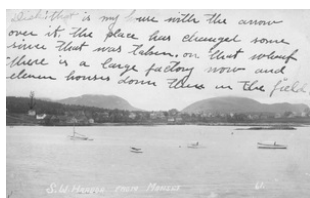 that is my home with the arrow
over it. the place has changed some
since that was taken. on that wharf
there is a large factory now and
eleven houses down there in the field.
S.W. Harbor from Manset